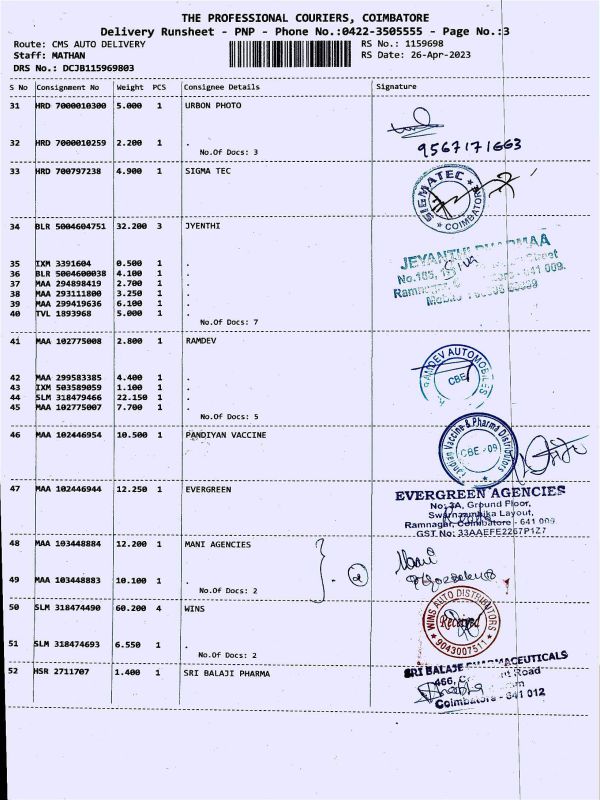 THE PROFESSIONAL COURIERS, COIMBATORE
Delivery Runsheet - PNP - Phone No.:0422-3505555 - Page No.:3
Route: CMS AUTO DELIVERY RS No.: 1159698
Staff: MATHAN RS Date: 26-Apr-2023
DRS No.: DCJB115969803
S No Consignment No Weight PCS Consignee Details Signature
31 HRD 7000010300 5.000 1 URBON PHOTO
32 HRD 7000010259 2.200 1 .
9567171663
No.Of Docs: 3
33 HRD 700797238 4.900 1 SIGMA TEC
SIGMATEC
COIMBATORE
34 BLR 5004604751 32.200 3 JYENTHI
35 IXM 3391604 0.500 1 .
36 BLR 5004600038 4.100 1 .
37 MAA 294898419 2.700 1 .
38 MAA 293111800 3.250 1 .
39 MAA 299419636 6.100 1 .
40 TVL 1893968 5.000 1 .
No.Of Docs: 7
Street
641 009.
41 MAA 102775008 2.800 1 RAMDEV
RAMDEV AUTOMOBILES
CBE
42 MAA 299583385 4.400 1 .
43 IXM 503589059 1.100 1 .
44 SLM 318479466 22.150 1 .
45 MAA 102775007 7.700 1 .
No.Of Docs: 5
46 MAA 102446954 10.500 1 PANDIYAN VACCINE
Vaccine & Pharma Distributors
CBE - 09
47 MAA 102446944 12.250 1 EVERGREEN
EVERGREEN AGENCIES
No: 3A, Ground Floor,
Layout,
Ramnagar, Coimbatore - 641 009
GST No: 33AAEFE2267P1Z7
48 MAA 103448884 12.200 1 MANI AGENCIES
Mani
49 MAA 103448883 10.100 1 .
No.Of Docs: 2
50 SLM 318474490 60.200 4 WINS
WINS AUTO DISTRIBUTORS
Received
9043007511
51 SLM 318474693 6.550 1 .
No.Of Docs: 2
52 HSR 2711707 1.400 1 SRI BALAJI PHARMA
SRI BALAJE PHARMACEUTICALS
466, Road
Coimbatore - 641 012